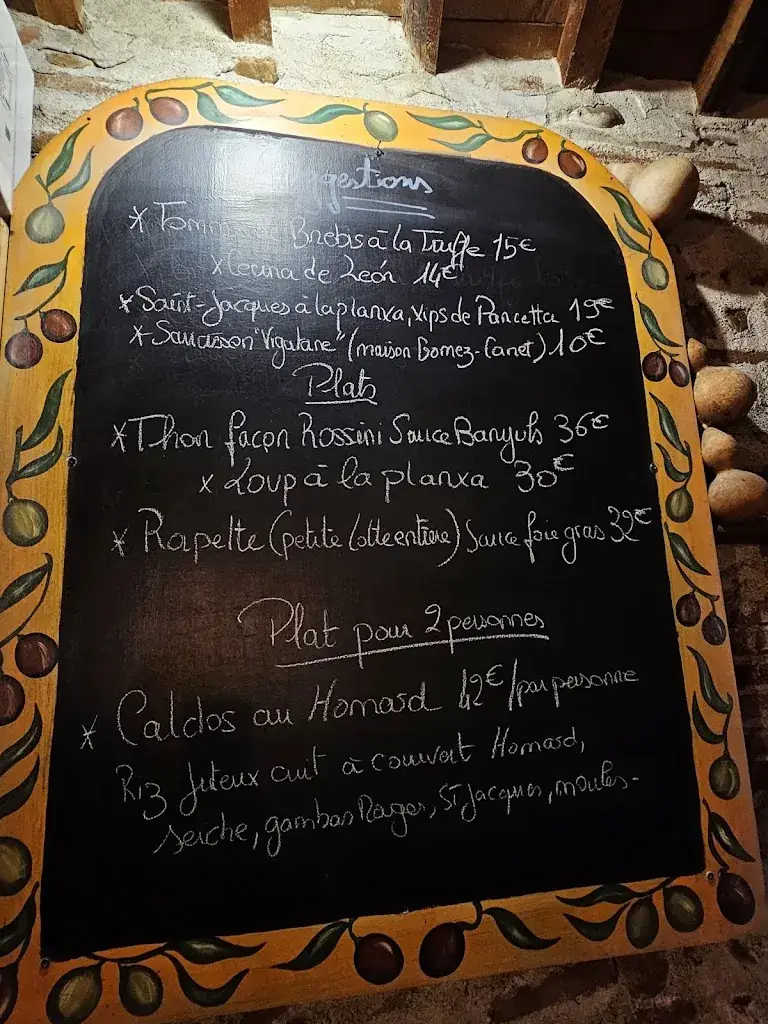 gestions
* Tomm Brebis à la Truffe 15€
x Cecina de León 14€
* Saint-Jacques à la planxa, xips de Pancetta 19€
* Saucisson "Vigatane" (maison Gomez-Canet) 10€
Plats
x Thon façon Rossini Sauce Banyuls 36€
x Loup à la planxa 30€
* Rapette (petite lotte entière) Sauce foie gras 32€
Plat pour 2 personnes
* Caldos au Homard 42€/par personne
Riz Juteux cuit à couvert Homard,
seiche, gambas Rouges, St Jacques, moules-